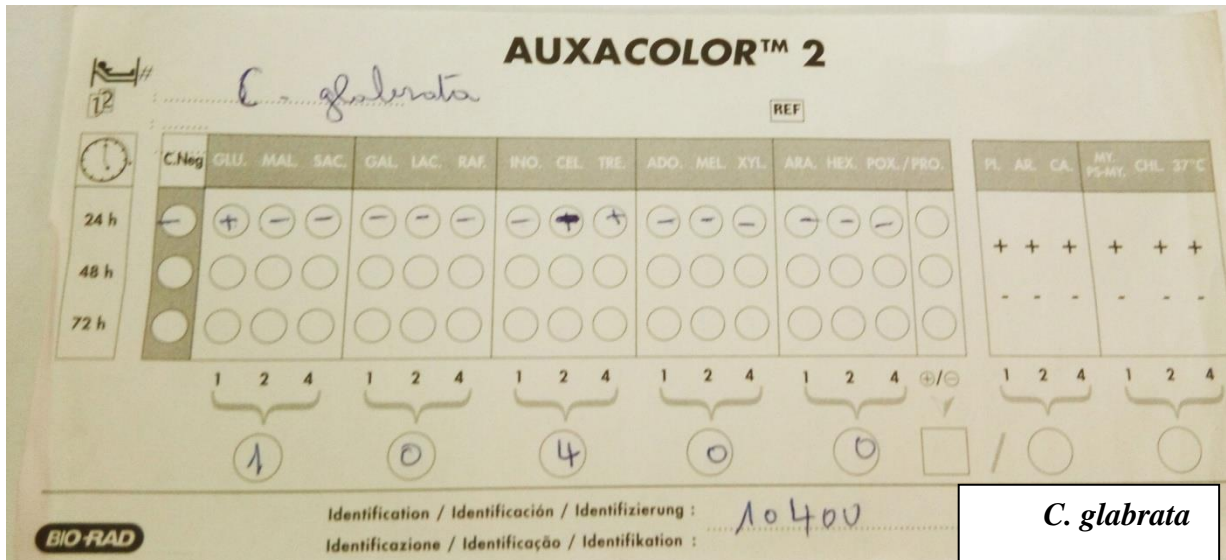 AUXACOLOR™ 2
#
12 : C - glabrata
REF
C.Neg GLU. MAL. SAC. GAL. LAC. RAF. INO. CEL. TRE. ADO. MEL. XYL. ARA. HEX. POX./PRO. PL. AR. CA. MY. PS-MY. CHL. 37°C
24 h - + - - - - - - + + - - - - - -
+ + + + + +
48 h
- - - - - -
72 h
1 2 4 1 2 4 1 2 4 1 2 4 1 2 4 ⊕/⊖ 1 2 4 1 2 4
1 0 4 0 0 /
Identification / Identificación / Identifizierung : 10400
Identificazione / Identificação / Identifikation :
BIO-RAD
C. glabrata